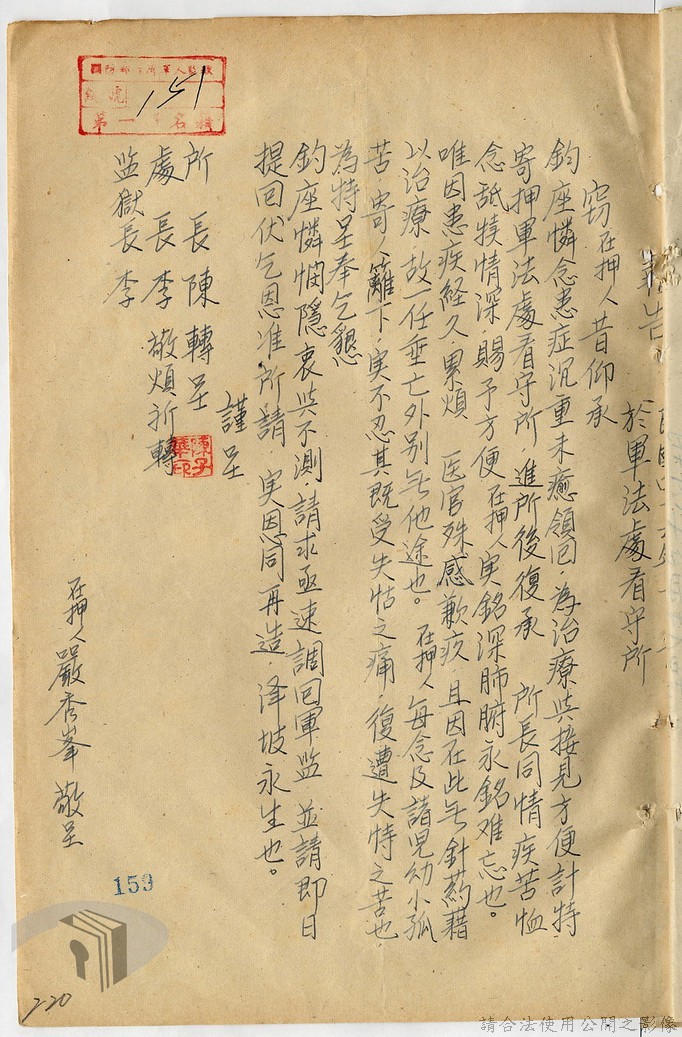 報告
於軍法處看守所
竊在押人昔仰承
鈞座憐念患症沉重未癒領回,為治療與接見方便計特
寄押軍法處看守所,進所後復承 所長同情疾苦恤
念舐犢情深,賜予方便在押人实銘深肺腑永銘难忘也。
唯因患疾経久,累煩 医官殊感歉疚,且因在此无針葯藉
以治療,故一任垂亡外别无他途也。在押人每念及諸児幼小孤
苦,寄人籬下,实不忍其既受失怙之痛,復遭失恃之苦也,
為特呈奉乞懇
鈞座憐憫隱衷與不測,請求亟速調回軍监 並請即日
提回伏乞恩准所請,实因同再造,泽坡永生也。
謹呈
所長陳轉呈
處長李敬煩祈轉
监獄長李
在押人嚴秀峯敬呈
151
第一 名籍
159
220
請合法使用公開之影像